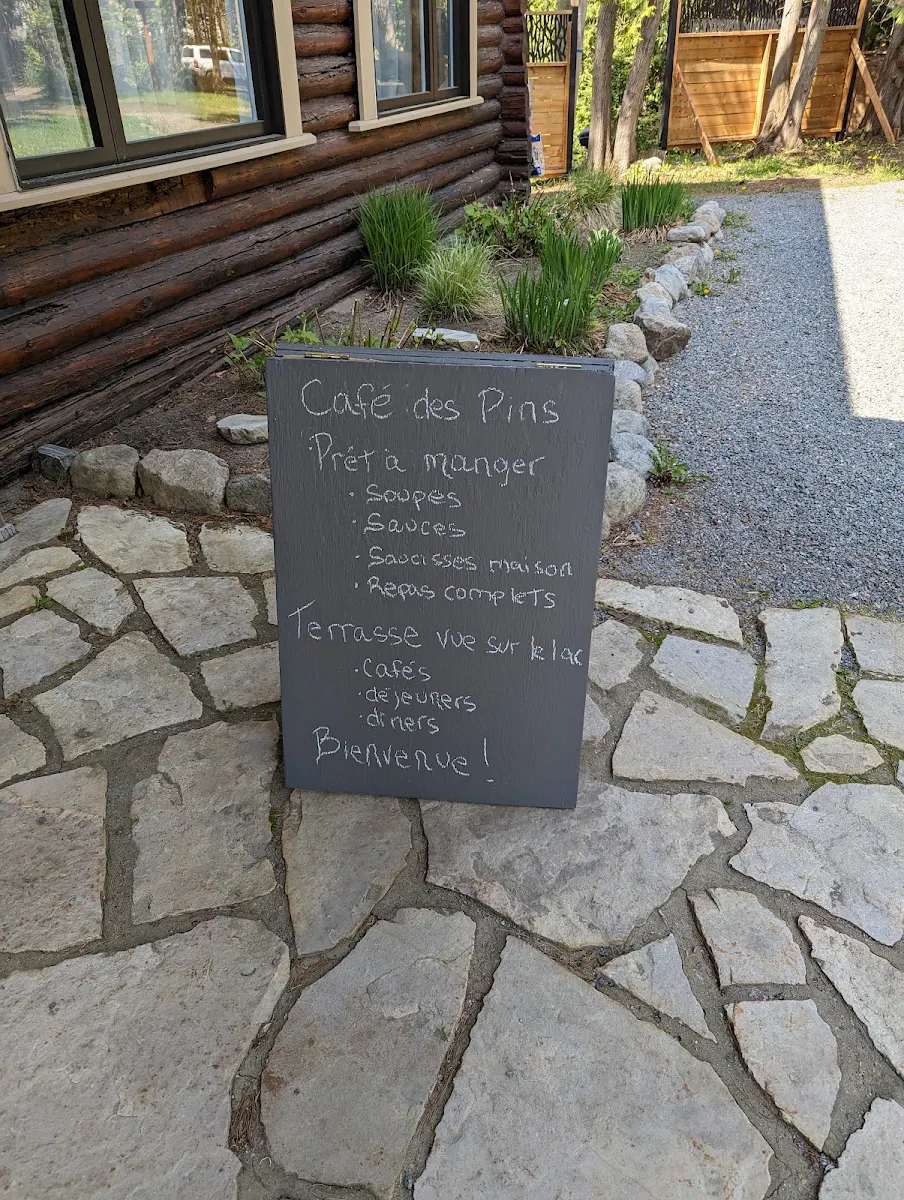 Café des Pins
Prêt à manger
· Soupes
· Sauces
· Saucisses maison
· Repas complets
Terrasse vue sur le lac
· cafés
· déjeuners
· dîners
Bienvenue!